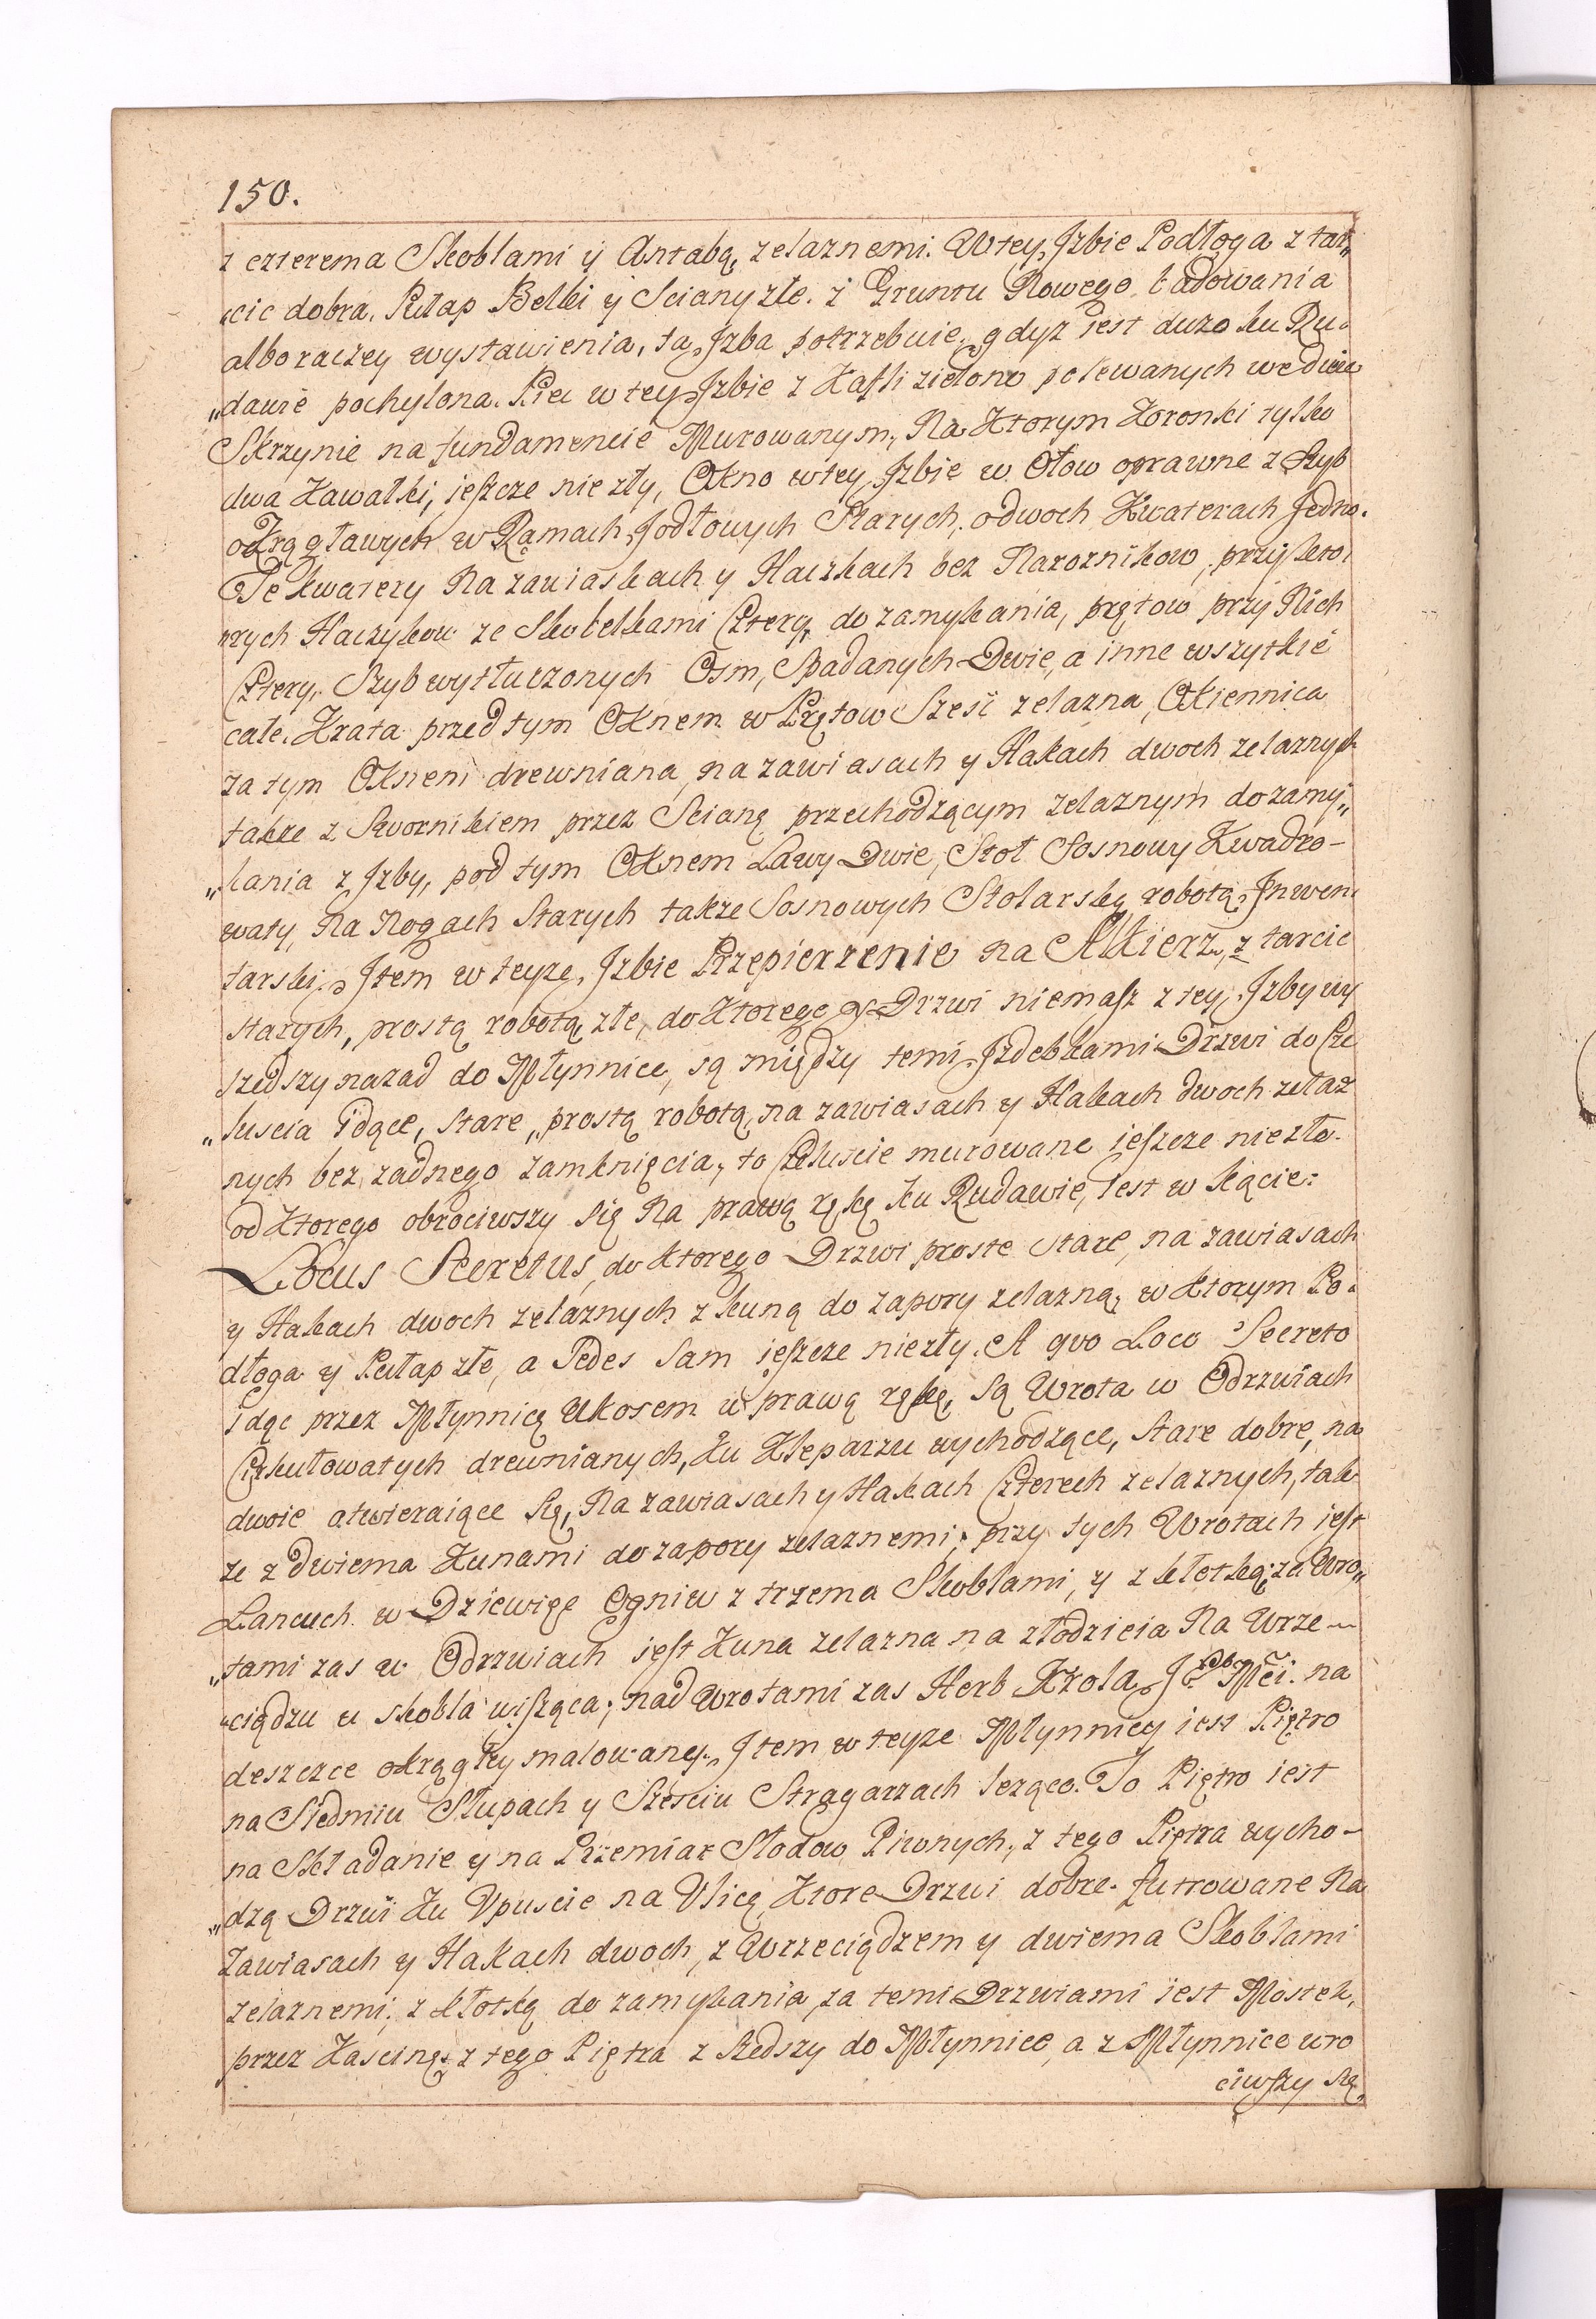 150.
z czterema Skoblami ÿ Antabą, zelaznemi. W tey Jzbie Podłoga z tar„
„cic dobra. Pułap Belki y Sciany złe. z Gruntu Nowego ładowania
albo raczey wystawienia, ta Jzba potrzebuie, gdyz iest duzo ku Ru„
„dawie pochylona. Piec w tey Jzbie z Kafli zielono polewanych we dwie
Skrzynie na fundamencie Murowanym, Na Ktorym Koronki tylko
dwa Kawałki, ieszcze nie zły, Okno w tey Jzbie w Ołow oprawne z Szyb
okrągławych w Ramach Jodłowych Starych, o dwoch Kwaterach Jedno.
Te kwatery Na zawiaskach y Haczkach bez Naroznikow, przy kto„
„rych Haczykow ze Skobelkami Cztery, do zamykania, prętow przy Nich
Cztery. Szyb wytłuczonych Osm, Spadanych Dwie, a inne wszytkie
całe. Krata przed tym Oknem w Prętow Szesć zelazna, Okiennica
za tym Oknem drewniana, na zawiasach y Hakach dwoch zelaznych
takze z Swornikiem przez Scianę przechodzącym zelaznym do zamy„
„kania z Jzby, pod tym Oknem Ławy Dwie, Stoł Sosnowy Kwadro-
waty, Na Nogach Starych takze Sosnowych Stolarską robotą, Jnwen„
tarski. Jtem w teyze Jzbie Przepierzenie na Alkierz, z tarcic
starych, prostą robotą złe, do Ktorego y Drzwi niemasz z tey Jzby wy
szedszy nazad do Młynnice, są między temi Jzdebkami Drzwi do Cze
„luscia idące, stare, prostą robotą, na zawiasach y Hakach dwoch zelaz
nych bez zadnego zamknięcia, to Czeluscie murowane ieszcze niezłe.
od Ktorego obrociwszy się Na prawą rękę ku Rudawie, Jest w kącie:
Locus Secretus, do ktorego Drzwi proste stare, na zawiasach
y Hakach dwoch zelaznych z kuną do zapory zelazną, w ktorym Po„
dłoga y Pułap złe, a Sedes sam ieszcze niezły. A quo Loco Secreto
idąc przez Młynnicę Ukosem w prawą rękę, są Wrota w Odrzwiach
Cyrkułowatych drewnianych, Ku Kleparzu wychodzące, stare dobre, na
dwoie otwieraiące się, Na zawiasach y Hakach Czterech zelaznych, tak
ze z dwiema Kunami do zapory zelaznemi; przy tych Wrotach iest
Łancuch w Dziewięć Ogniw z trzema Skoblami, y z kłotką; za Wro„
„tami zas w Odrzwiach iest Kuna zelazna na złodzieia Na Wrze-
„ciądzu u skobla wisząca; nad Wrotami zas Herb Krola Jeo Mći. na
deszczce okrągły malowany. Jtem w teyze Młynnicy iest Piętro
na Siedmiu Słupach y Szesciu Stragarzach lezące. To Piętro iest
na Składanie y na Przemiar Słodow Piwnych, z tego Piętra wycho-
„dzą Drzwi Ku Upuscie na Ulicę, Ktore Drzwi dobre futrowane Na
Zawiasach y Hakach dwoch, z Wrzeciądzem y dwiema Skoblami
zelaznemi, z kłotką do zamykania, za temi Drzwiami iest Mostek,
przez Kascinę, z tego Piętra z Szedszy do Młynnice, a z Młynnice wro
ciwszy się,